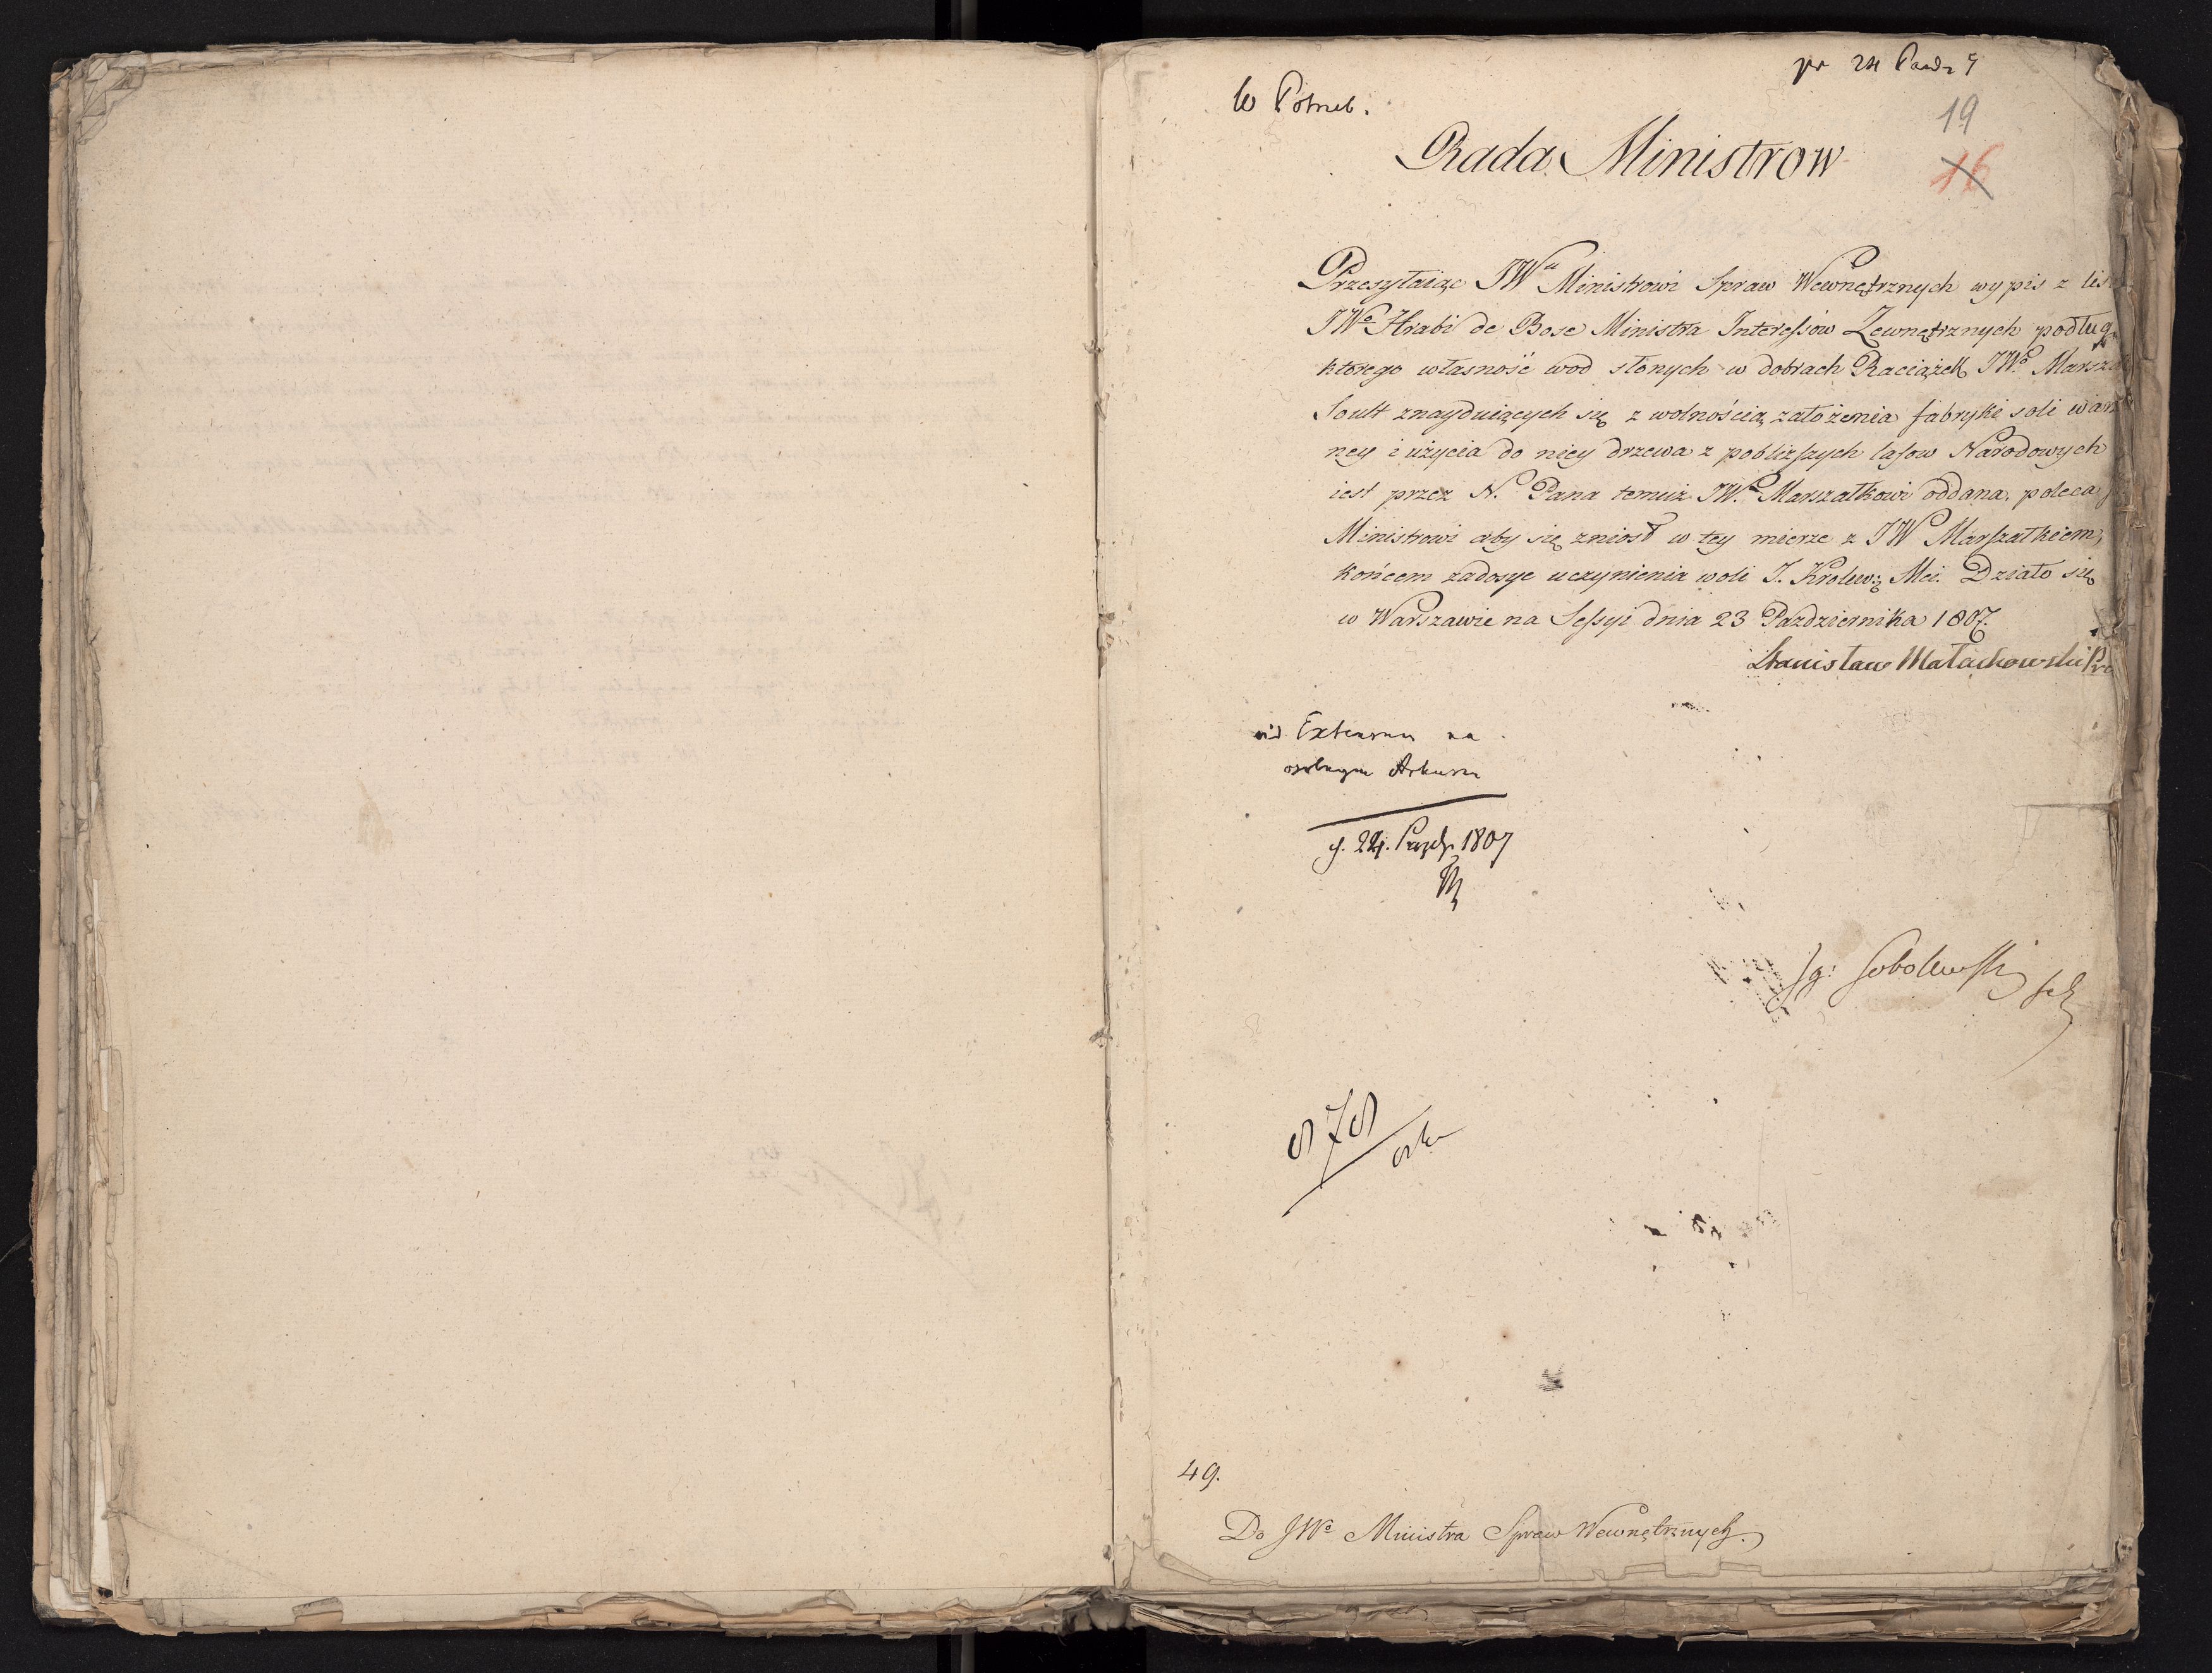 pr 24 Pazdr
W Potrzeb.
19
16
Rada Ministrow
Przesyłaiąc JWu Ministrowi Spraw Wewnętrznych wypis z lis
JWo Hrabi de Bose Ministra Interessów Zewnętrznych podług
którego własność wod słonych w dobrach Raciążek JWo Marsza
Soult znayduiących się z wolnością założenia fabryki soli warz
ney i użycia do niey drzewa z pobliższych lasow Narodowych
iest przez N. Pana temuż JW. Marszałkowi oddana, poleca
Ministrowi aby się zniosł w tey mierze z JW Marszałkiem,
końcem zadosyc uczynienia woli J. Krolew: Mci. Działo się
w Warszawie na Sessyi dnia 23 Pazdziernika 1807.
Stanisław Małachowski Pre
vid Extensum na
osobnym Arkuszu
d. 24. Pazdr. 1807
Ig: Sobolewski Sek
878
49.
Do JWo Ministra Spraw Wewnętrznych.